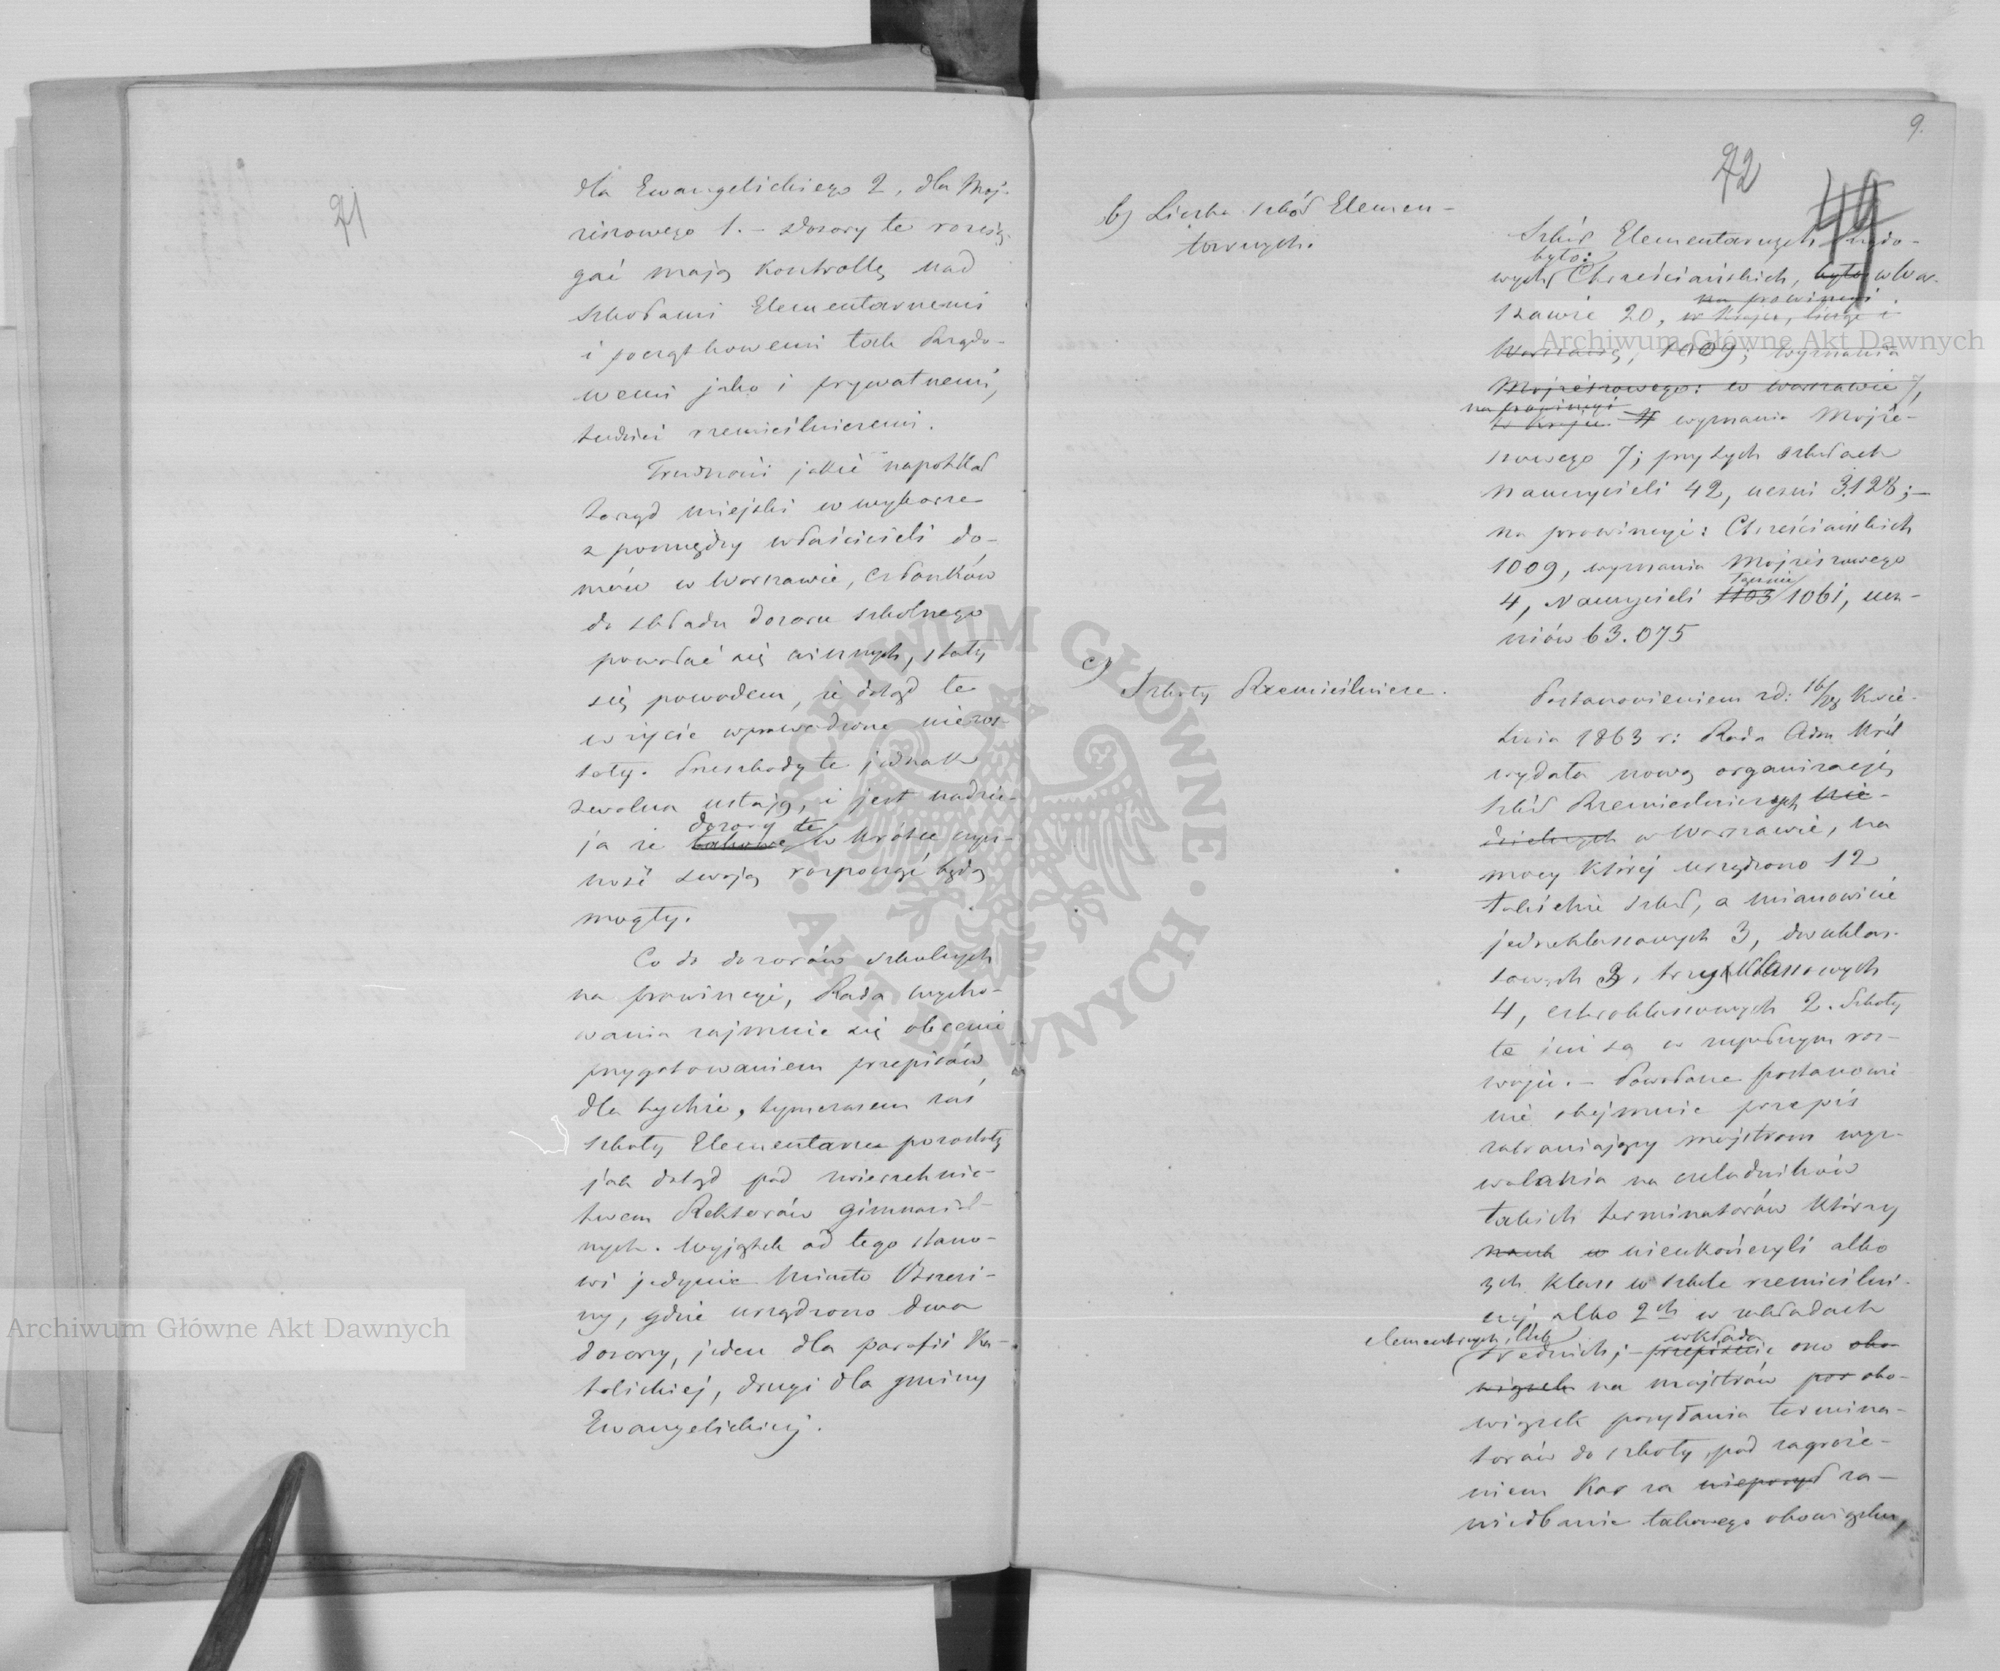 71
dla Ewangelickiego 2, dla Moj-
żeszowego 1. – Dozory te rozcią-
gać mają kontrollę nad
szkołami Elementarnemi
i początkowemi tak Rządo-
wemi jako i prywatnemi,
tudzież rzemieślniczemi.
Trudności jakie napotkał
Zarząd miejski w wyborze
z pomiędzy właścicieli do-
mów w Warszawie, członków
do składu dozoru szkolnego
powołać się winnych, stały
się powodem, iż dotąd te
w życie wprowadzone niezo-
stały. Przeszkody te jednak
zwolna ustają, i jest nadzie-
dozory te
ja że takowe w krótce czyn-
ność swoją rozpocząć będą
mogły.
Co do dozorów szkolnych
na prowincyi, Rada wycho-
wania zajmuje się obecnie
przygotowaniem przepisów
dla tychże, tymczasem zaś
szkoły Elementarne pozostały
jak dotąd pod zwierzchnic-
twem Rektorów gimnazial-
nych. Wyjątek od tego stano-
wi jedynie Miasto Brzezi-
ny, gdzie urządzono dwa
dozory, jeden dla parafii Ka-
tolickiej, drugi dla gminy
Ewangelickiej.
9.
72
44
b) Liczba szkół Elemen-
tarnych.
Szkół Elementarnych Rządo-
było:
wych Chrześciańskich, było w War-
na prowincyi
szawie 20, w Kraju, licząc i
Warszawę, 1009; wyznania
Mojżeszowego: w Warszawie 7,
na prowincyi
w Kraju 11 wyznania Mojże-
szowego 7; przy tych szkołach
Nauczycieli 42, uczni 3.128; –
na prowincyi: Chrześciańskich
1009, wyznania Mojżeszowego
4, Nauczycieli 1103 1061, ucz-
niów 63.075
c) Szkoły Rzemieślnicze.
Postanowieniem z d: 16/28 Kwie-
tnia 1863 r: Rada Adm Król
wydała nową organizacją
szkół Rzemieślniczych Nie-
dzielnych w Warszawie, na
mocy której urządzono 12
takichże szkół, a mianowicie
jednoklassowych 3, dwuklas-
sowych 3, trzyklassowych
4, czteroklassowych 2. Szkoły
te już są w zupełnym roz-
woju. – Powołane postanowie
nie obejmuje przepis
zabraniający majstrom wyz-
walania na czeladników
takich terminatorów którzy
nauk w nieukończyli albo
3ch klass w szkole rzemieślni-
czej, albo 2ch w zakładach
elementarnych, lub
wkłada
średnich; – przepisuje ono obo
wiązek na majstrów por obo-
wiązek posyłania termina-
torów do szkoły, pod zagroże-
niem Kar za nieposył za-
niedbanie takowego obowiązku,
Archiwum Główne Akt Dawnych
Archiwum Główne Akt Dawnych
ARCHIWUM GŁÓWNE · AKT DAWNYCH ·